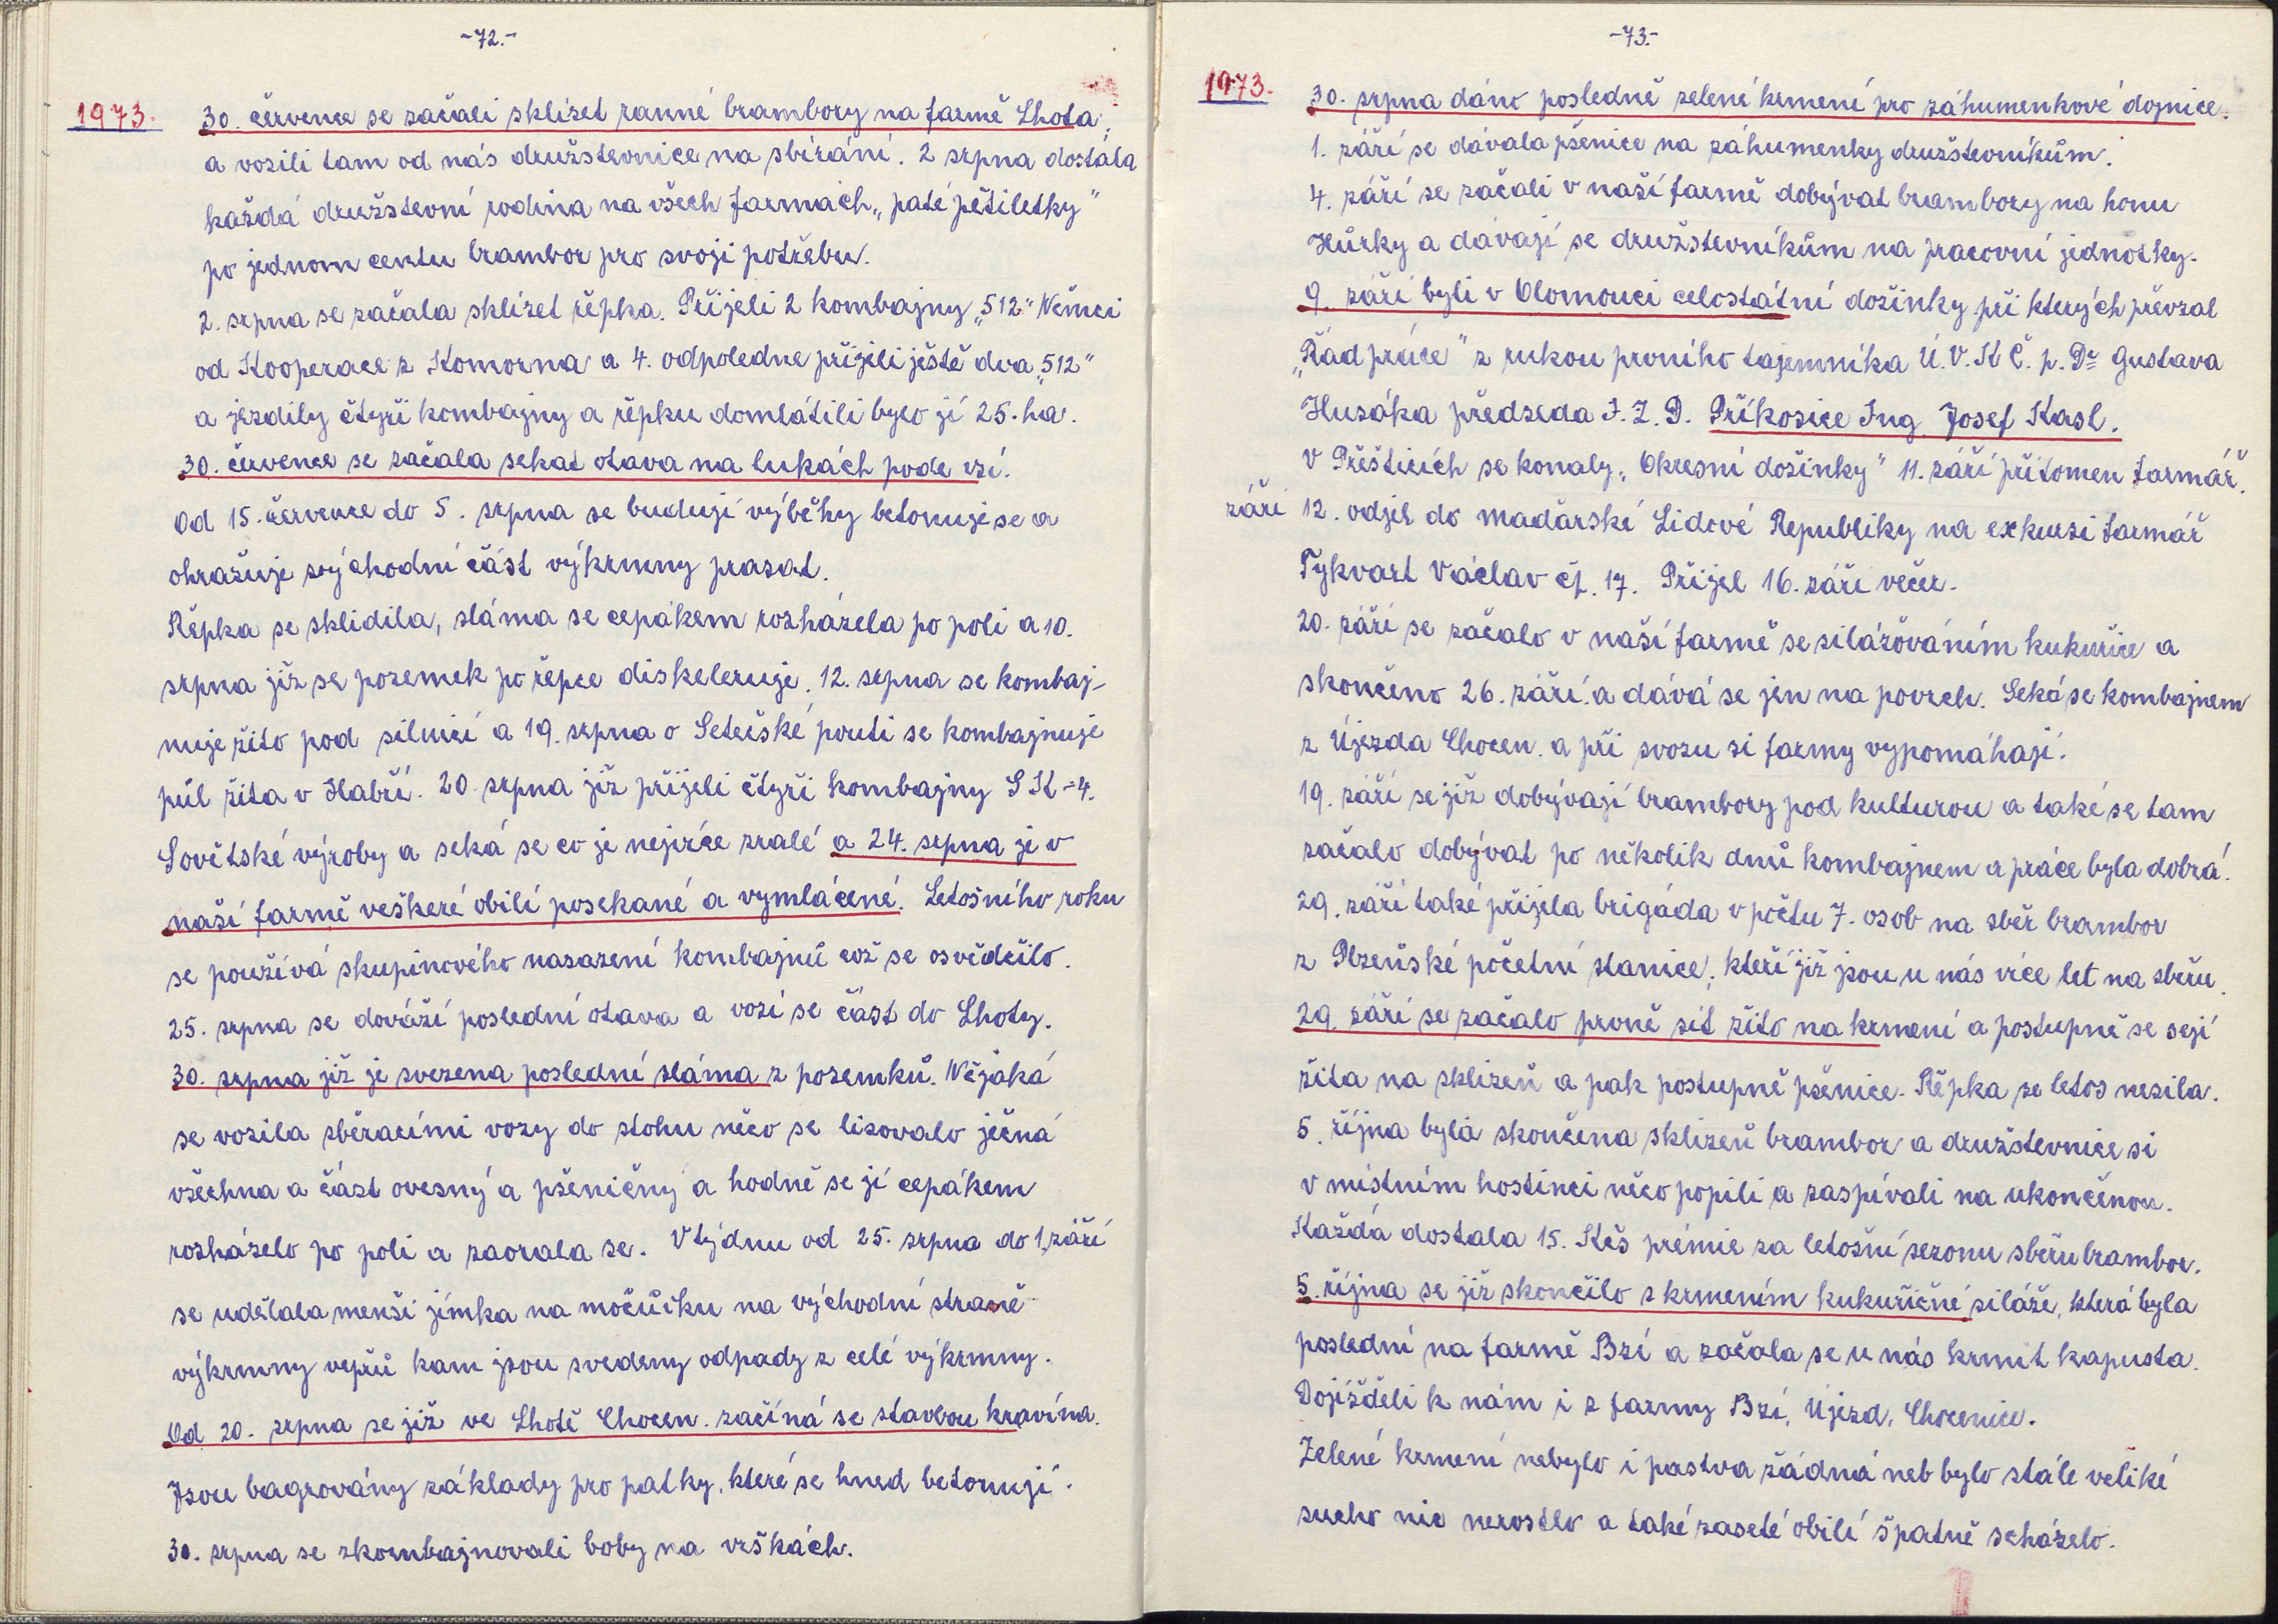 -72.-
1973.
30. července se začali sklízet ranné brambory na farmě Lhota,
a vozili tam od nás družstevnice na sbírání. 2 srpna dostala
každá družstevní rodina na všech farmách „paté pětiletky"
po jednom centu brambor pro svoji potřebu.
2. srpna se začala sklízet řepka. Přijeli 2 kombajny „512" Němci
od Kooperace z Komorna a 4. odpoledne přijeli ještě dva „512"
a jezdily čtyři kombajny a řepku domlátili bylo jí 25. ha.
30. července se začala sekat otava na lukách pode vsí.
Od 15. července do 5. srpna se budují výběhy betonuje se a
ohražuje východní část výkrmny prasat.
Řepka se sklidila, sláma se cepákem rozházela po poli a 10.
srpna již se pozemek po řepce diskeleruje. 12. srpna se kombaj-
nuje žito pod silnicí a 19. srpna o Setečské pouti se kombajnuje
půl žita v Habří. 20. srpna již přijeli čtyři kombajny SK-4.
Sovětské výroby a seká se co je nejvíce zralé a 24. srpna je v
naší farmě veškeré obilí posekané a vymlácené. Letošního roku
se používá skupinového nasazení kombajnů což se osvědčilo.
25. srpna se dováží poslední otava a vozí se část do Lhoty.
30. srpna již je svezena poslední sláma z pozemků. Nějaká
se vozila sběracími vozy do stohu něco se lisovalo ječná
všechna a část ovesný a pšeničný a hodně se jí cepákem
rozházelo po poli a zaorala se. V týdnu od 25. srpna do 1. září
se udělala menší jímka na močůčku na východní straně
výkrmny vepřů kam jsou svedeny odpady z celé výkrmny.
Od 20. srpna se již ve Lhotě Chocen. začíná se stavbou kravína.
Jsou bagrovány základy pro patky, které se hned betonují.
30. srpna se zkombajnovali boby na vrškách.
-73.-
1973.
30. srpna dáno posledně zelené krmení pro záhumenkové dojnice.
1. září se dávala pšenice na záhumenky družstevníkům.
4. září se začali v naší farmě dobývat brambory na honu
Hůrky a dávají se družstevníkům na pracovní jednotky.
9. září byli v Olomouci celostátní dožinky při kterých převzal
„Řád práce" z rukou prvního tajemníka Ú.V.K Č. p. Dr Gustava
Husáka předseda J.Z.D. Příkosice Ing. Josef Kasl.
V Přešticích se konaly „Okresní dožinky" 11. září přítomen farmář.
září 12. odjel do maďarské Lidové Republiky na exkursi farmář
Tykvart Václav čp. 17. Přijel 16. září večer.
20. září se začalo v naší farmě se silážováním kukuřice a
skončeno 26. září. a dává se jen na povrch. Seká se kombajnem
z Újezda Chocen. a při svozu si farmy vypomáhají.
19. září se již dobývají brambory pod kulturou a také se tam
začalo dobývat po několik dnů kombajnem a práce byla dobrá.
29. září také přijela brigáda v počtu 7. osob na sběr brambor
z Plzeňské početní stanice, kteří již jsou u nás více let na sběru.
29. září se začalo prvně sít žito na krmení a postupně se sejí
žita na sklizeň a pak postupně pšenice. Řepka se letos nesila.
5. října byla skončena sklizeň brambor a družstevnice si
v místním hostinci něco popili a zaspívali na ukončenou.
Každá dostala 15. Kčs prémie za letošní sezonu sběru brambor.
5. října se již skončilo s krmením kukuřičné siláže, která byla
poslední na farmě Bzí a začala se u nás krmit kapusta.
Dojížděli k nám i z farmy Bzí, Újezd, Chocenice.
Zelené krmení nebylo i pastva žádná neb bylo stále veliké
sucho nic nerostlo a také zaseté obilí špatně scházelo.